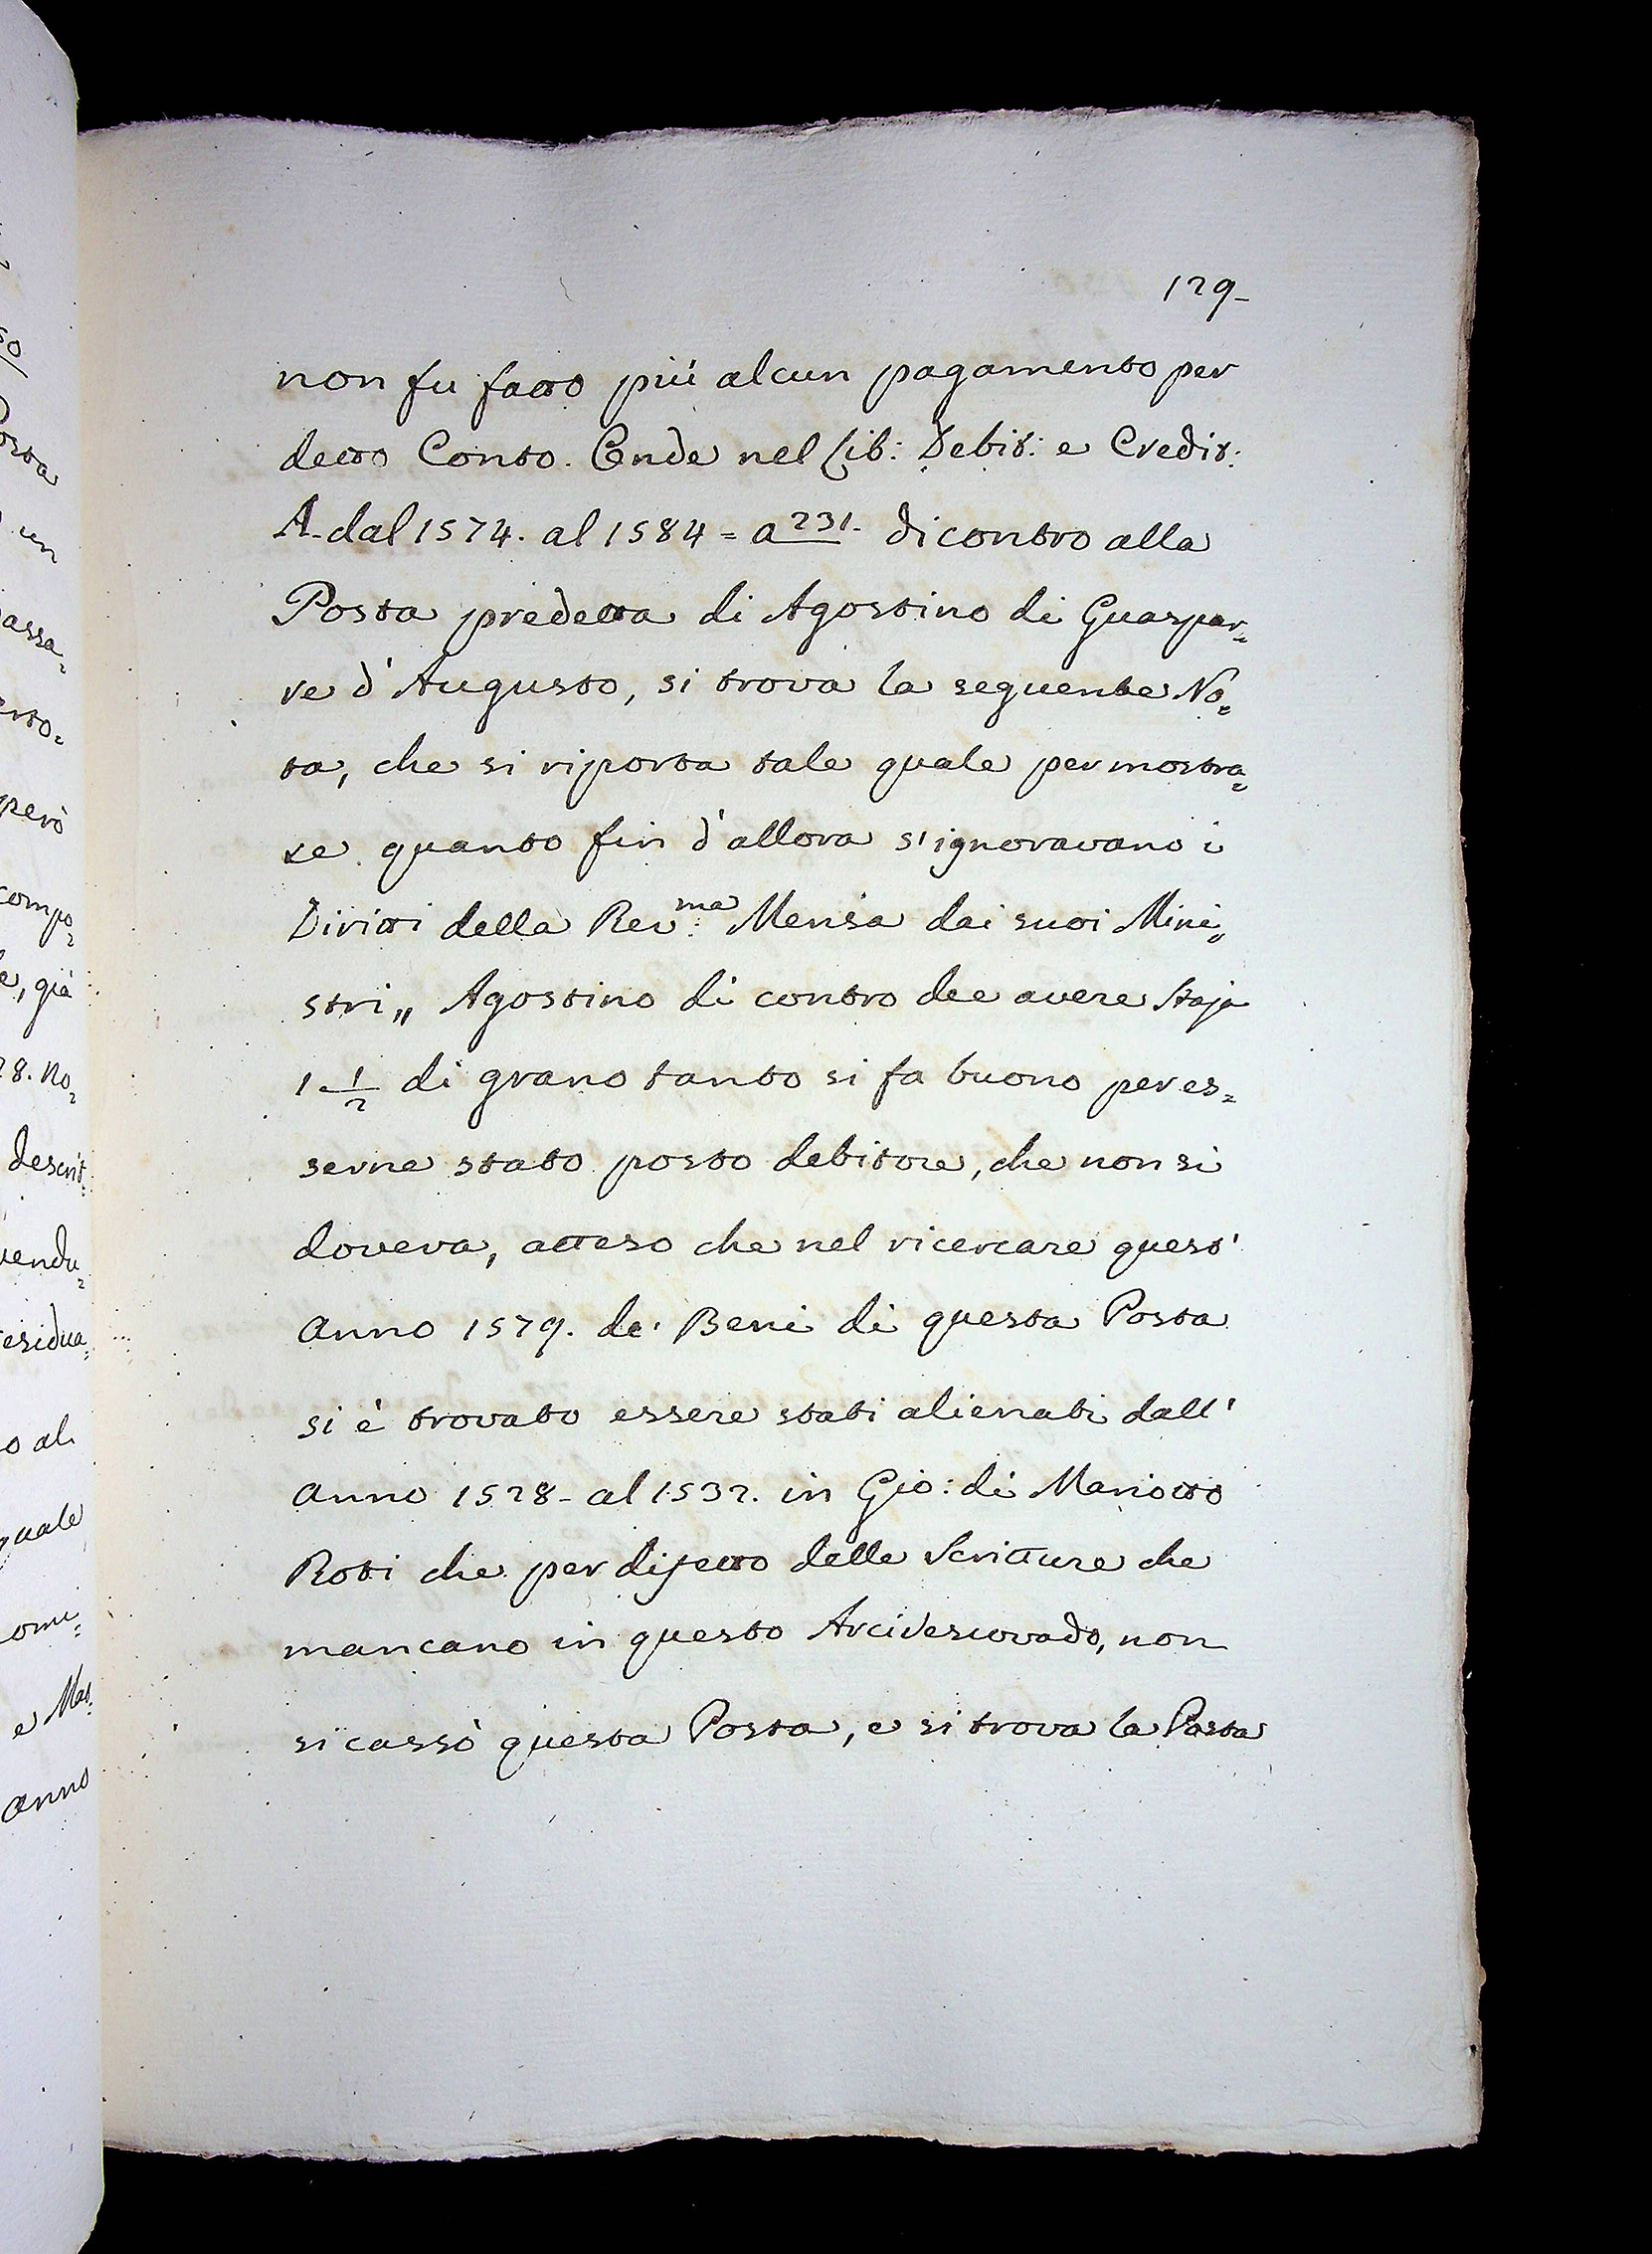 so
Posta
un
passa=
però
compo=
e, già
28. No=
descrit=
vendu=
residua=
o al
quale
e Mar=
Anno
129-
non fu fatto più alcun pagamento per
detto Conto. Onde nel Lib: Debit: e Credit:
A. dal 1574. al 1584 = a 231. di contro alla
Posta predetta di Agostino di Guaspar=
re d'Augusto, si trova la seguente No=
ta, che si riporta tale quale per mostra=
re quanto fin d'allora s'ignoravano i
Diritti della Rev:ma Mensa dai suoi Mini=
stri,, Agostino di contro dee avere Staja
1 1/2 di grano tanto si fa buono per es=
serne stato posto debitore, che non si
doveva, atteso che nel ricercare quest'
Anno 1579. de' Beni di questa Posta
si è trovato essere stati alienati dall'
Anno 1528- al 1532. in Gio: di Mariotto
Roti che per difetto delle Scritture che
mancano in questo Arcivescovado, non
si cassò questa Posta, e si trova la Posta